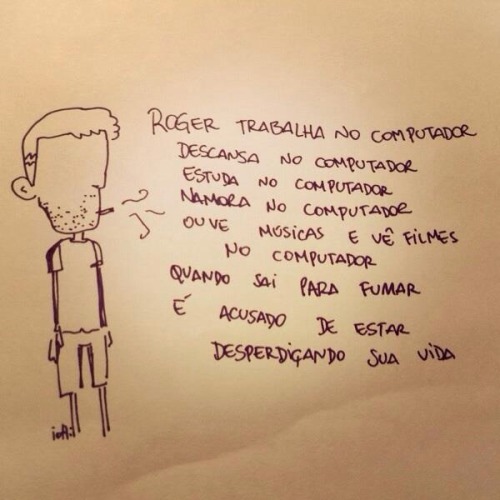 ROGER TRABALHA NO COMPUTADOR
DESCANSA NO COMPUTADOR
ESTUDA NO COMPUTADOR
NAMORA NO COMPUTADOR
OUVE MÚSICAS E VÊ FILMES
NO COMPUTADOR
QUANDO SAI PARA FUMAR
É ACUSADO DE ESTAR
DESPERDIÇANDO SUA VIDA